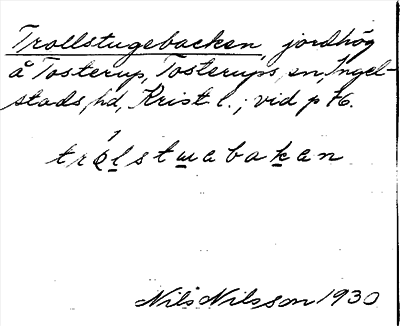 Trollstugebacken, jordhög
å Tosterup, Tosterups sn, Ingel-
stads hd, Krist. l.; vid p 76.
trolstuabakan
Nils Nilsson 1930